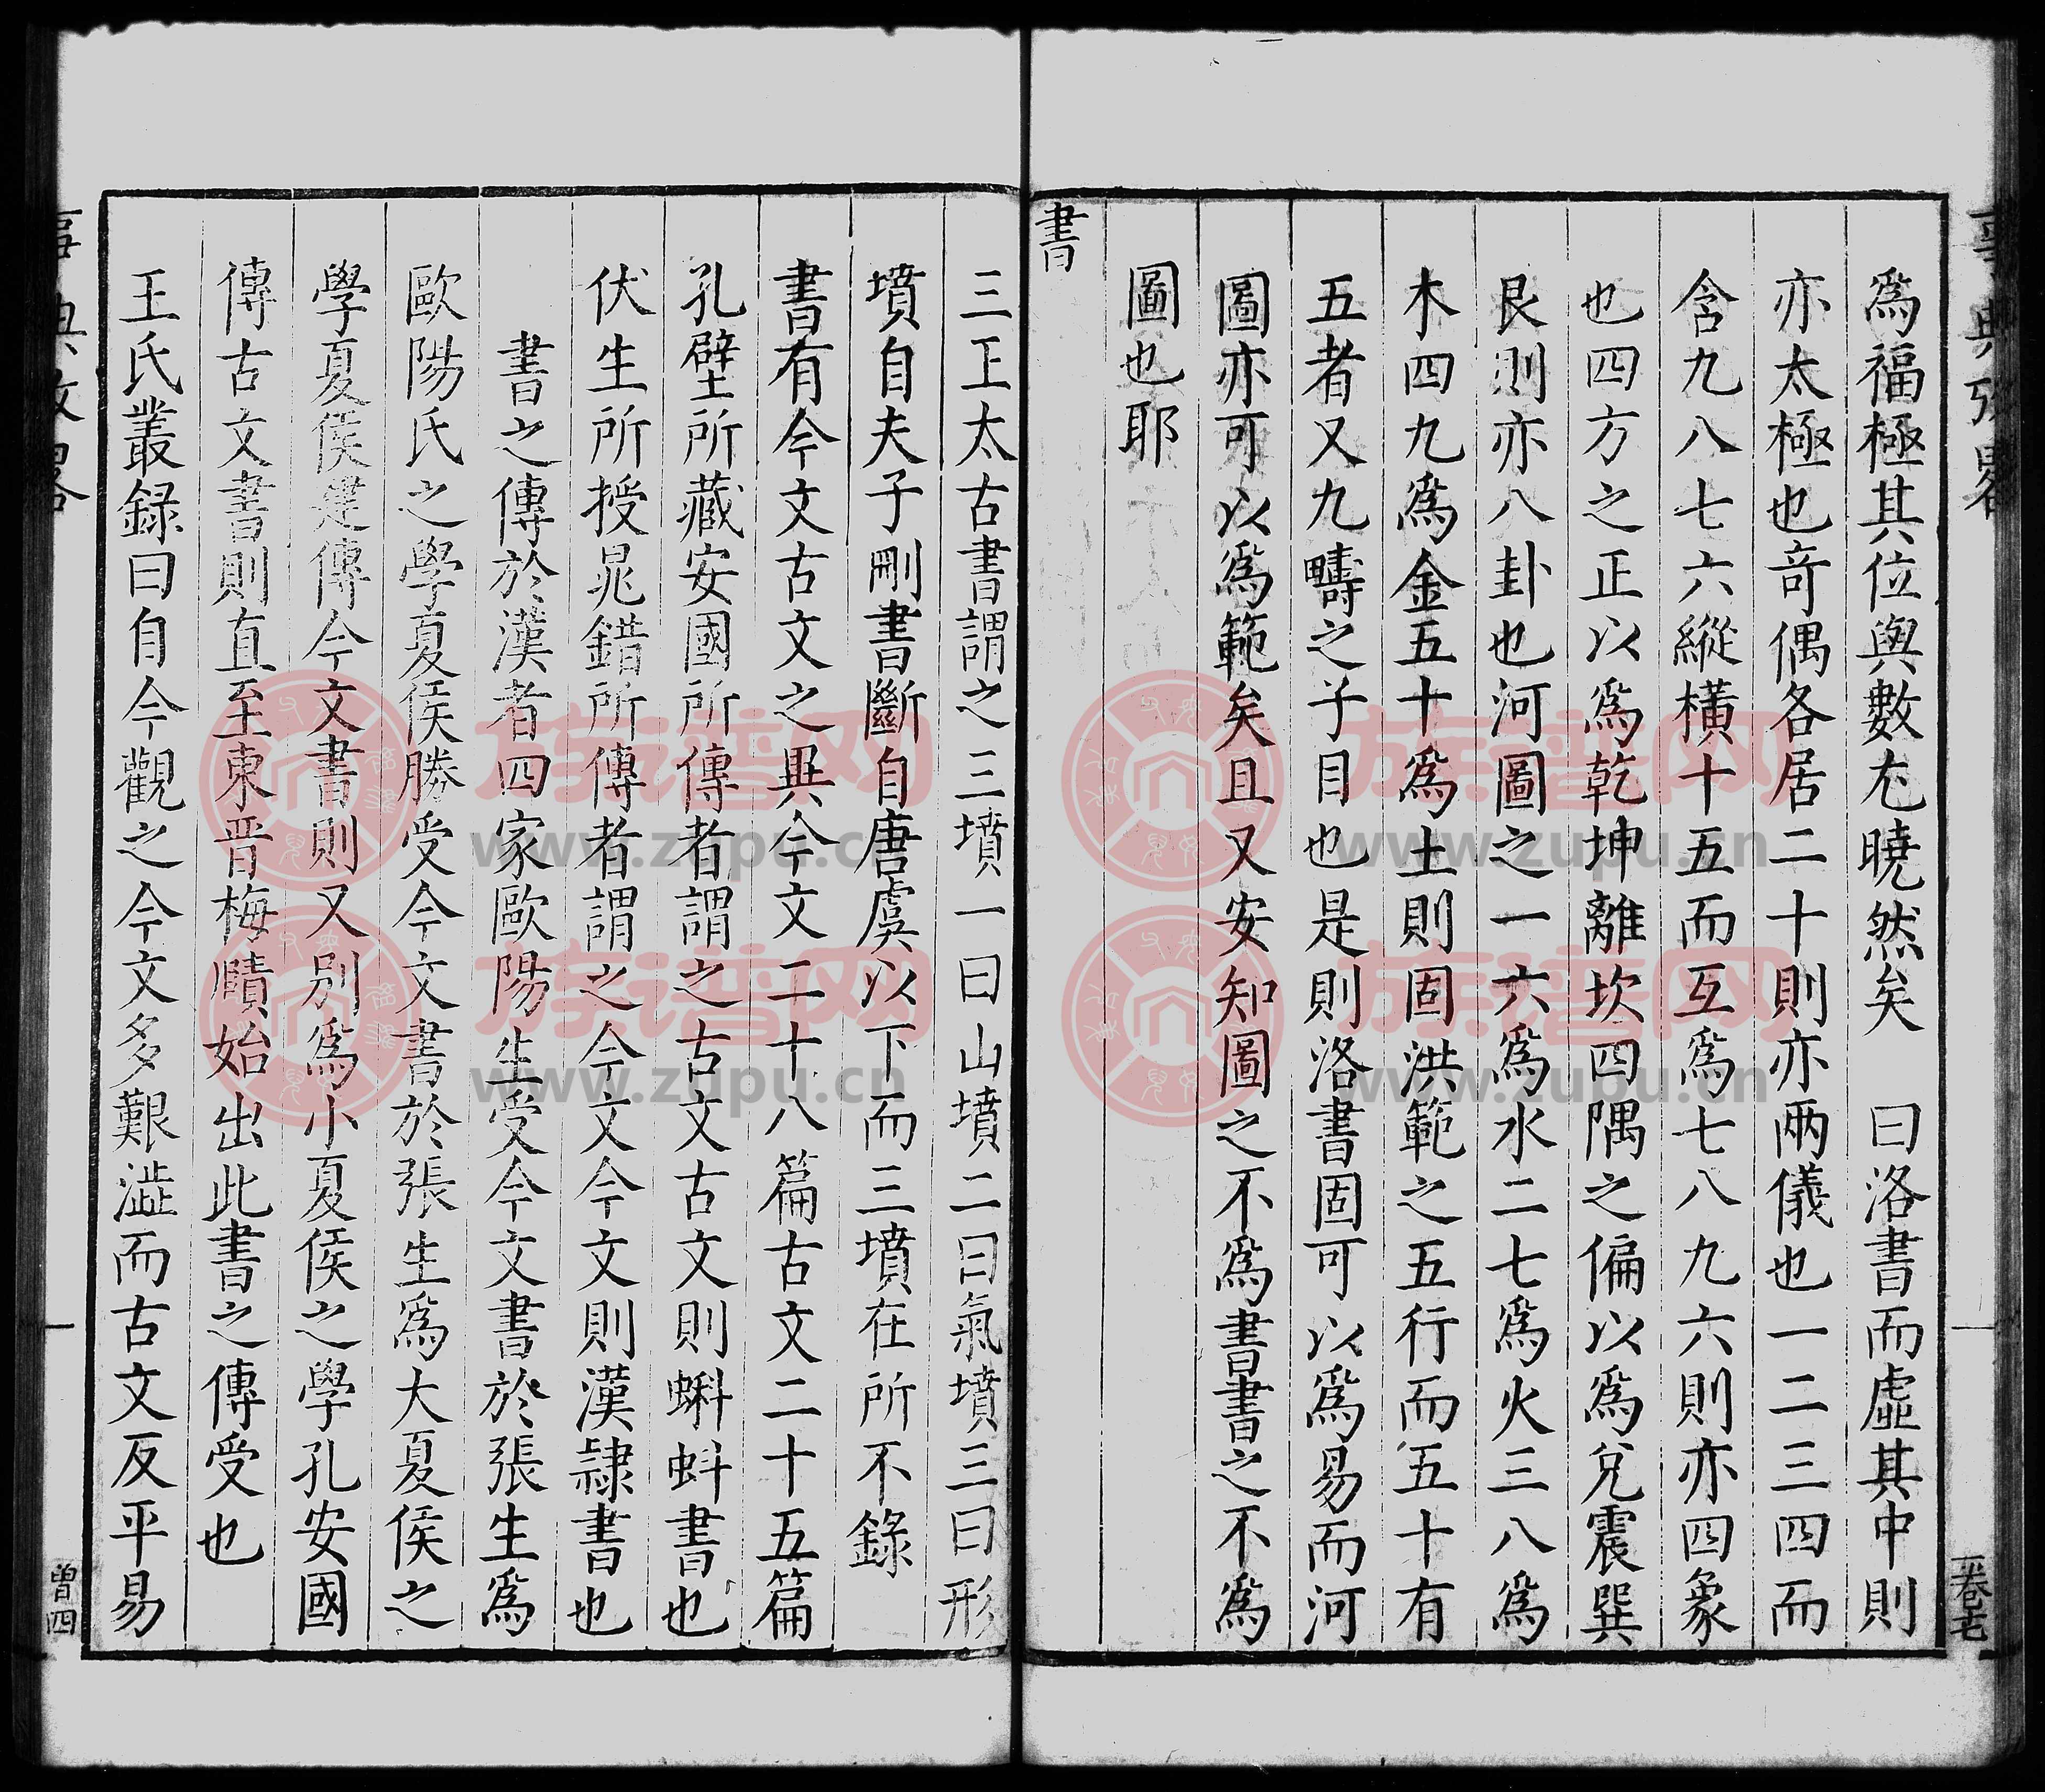 爲福極其位與數尤曉然矣　曰洛書而虛其中則
亦太極也竒偶各居二十則亦兩儀也一二三四而
含九八七六縱橫十五而互爲七八九六則亦四象
也四方之正以爲乾坤離坎四隅之偏以爲兌震巽
艮則亦八卦也河圖之一六爲水二七爲火三八爲
木四九爲金五十爲土則固洪範之五行而五十有
五者又九疇之子目也是則洛書固可以爲易而河
圖亦可以爲範矣且又安知圖之不爲書書之不爲
圖也耶
書
三王太古書謂之三墳一曰山墳二曰氣墳三曰形
墳自夫子刪書斷自唐虞以下而三墳在所不錄
書有今文古文之異今文二十八篇古文二十五篇
孔壁所藏安國所傳者謂之古文古文則蝌蚪書也
伏生所授晁錯所傳者謂之今文今文則漢隷書也
書之傳於漢者四家歐陽生受今文書於張生爲
歐陽氏之學夏侯勝受今文書於張生爲大夏侯之
學夏侯建傳今文書則又別爲小夏侯之學孔安國
傳古文書則直至東晋梅賾始出此書之傳受也
王氏叢録曰自今觀之今文多艱澁而古文反平易
卷七
曾四
族谱网
www.zupu.cn
族谱网
www.zupu.cn
族谱网
www.zupu.cn
族谱网
www.zupu.cn